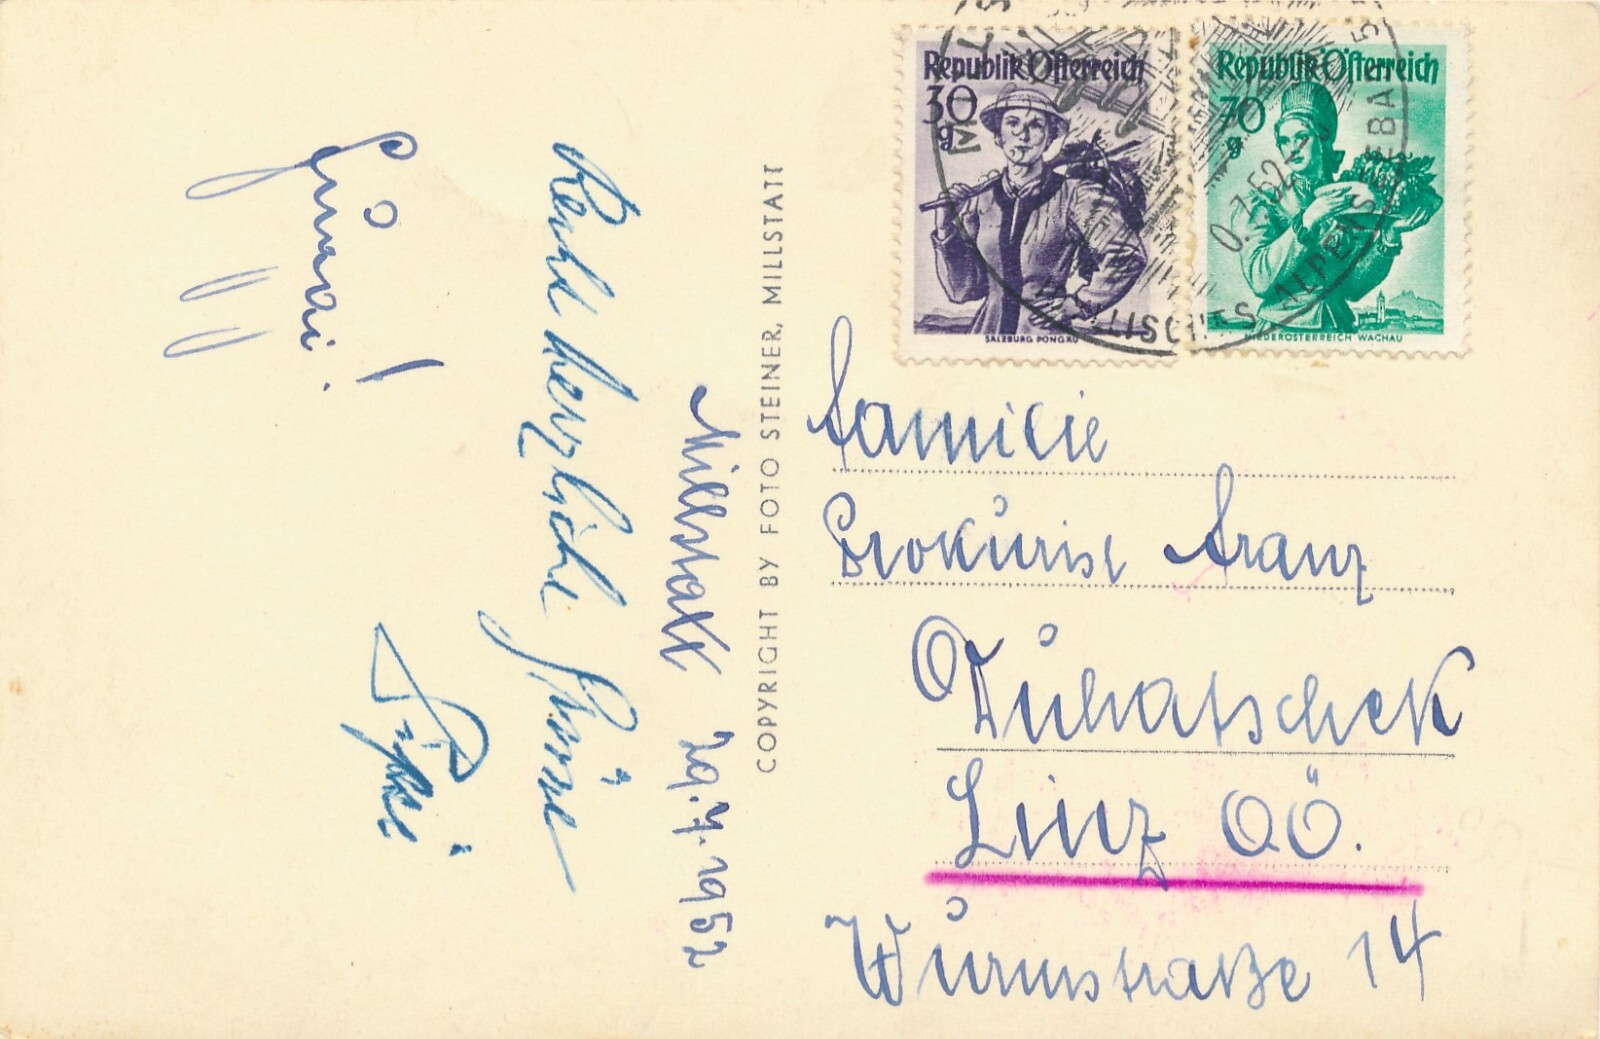 Republik Österreich
30
g
SALZBURG PONGAU
Republik Österreich
70
g
NIEDERÖSTERREICH WACHAU
Millstatt 29.7.1952
Recht herzliche Grüsse
COPYRIGHT BY FOTO STEINER, MILLSTATT
Familie
Prokurist Franz
Duhatschek
Linz OÖ.
Wurmstraße 14